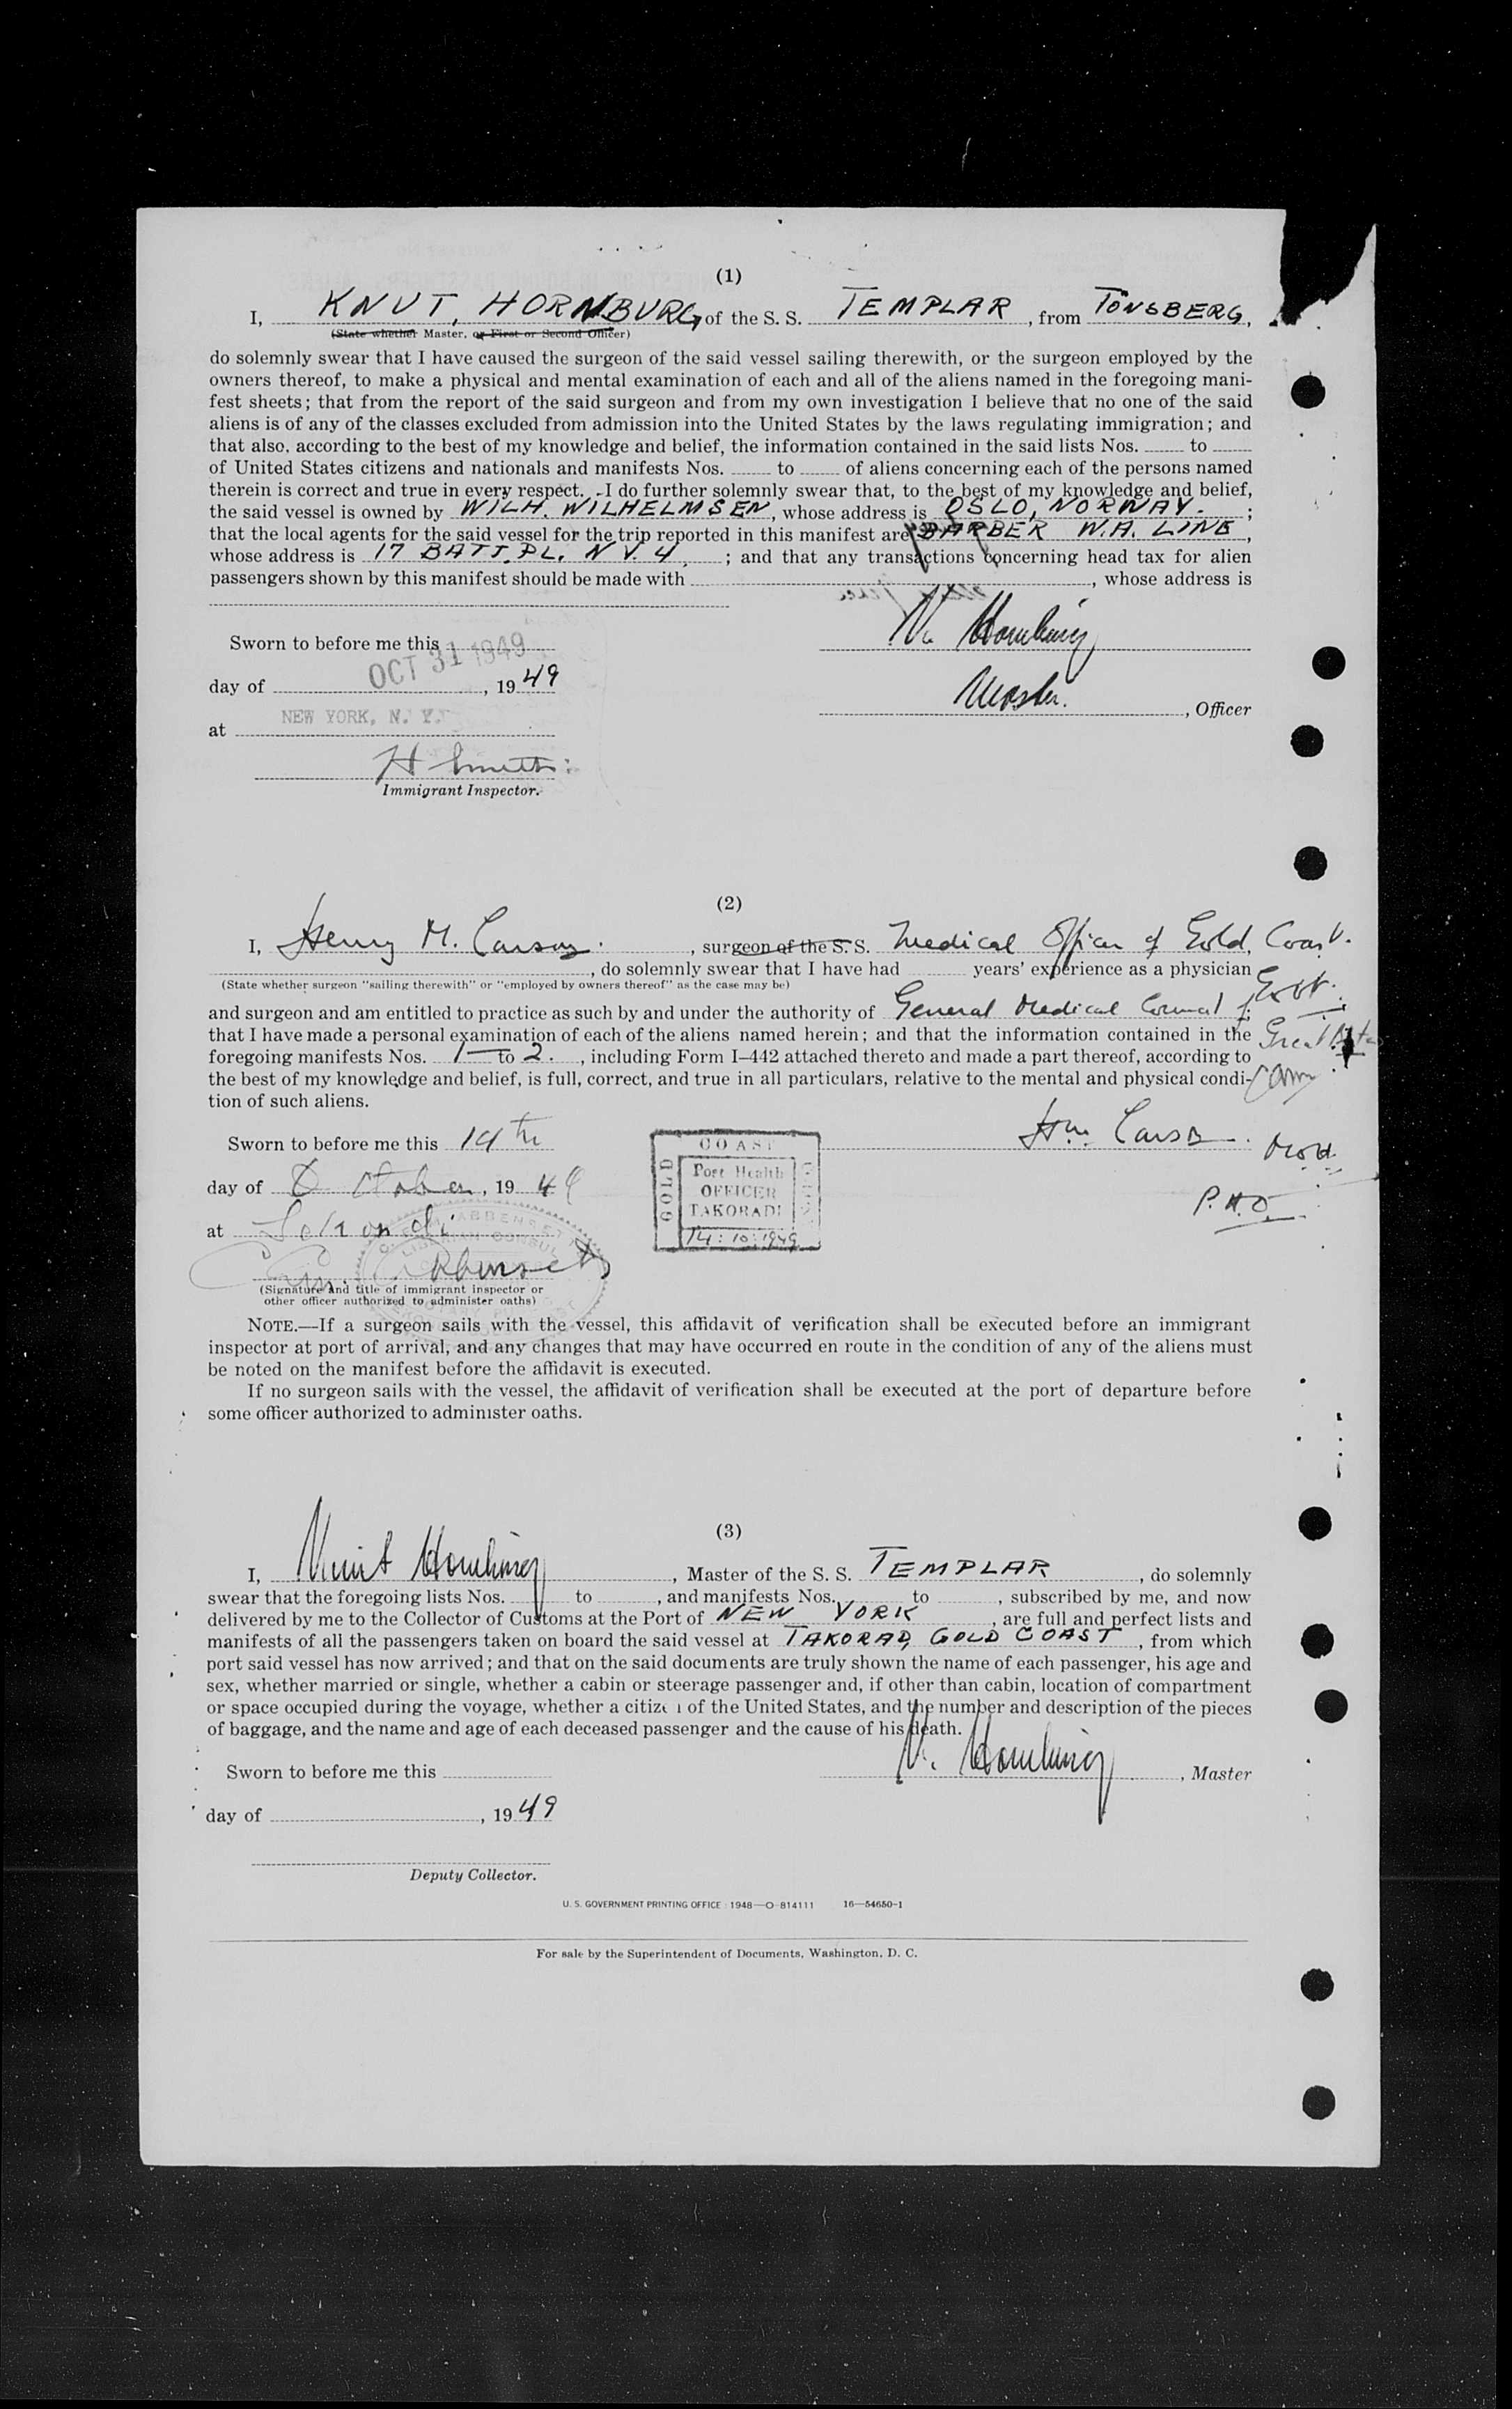 (1)
I, KNUT, HORNBURG, of the S. S. TEMPLAR, from TÖNSBERG,
(State whether Master, or First or Second Officer)
do solemnly swear that I have caused the surgeon of the said vessel sailing therewith, or the surgeon employed by the
owners thereof, to make a physical and mental examination of each and all of the aliens named in the foregoing mani-
fest sheets; that from the report of the said surgeon and from my own investigation I believe that no one of the said
aliens is of any of the classes excluded from admission into the United States by the laws regulating immigration; and
that also, according to the best of my knowledge and belief, the information contained in the said lists Nos. to
of United States citizens and nationals and manifests Nos. to of aliens concerning each of the persons named
therein is correct and true in every respect. I do further solemnly swear that, to the best of my knowledge and belief,
the said vessel is owned by WILH. WILHELMSEN, whose address is OSLO, NORWAY. ;
that the local agents for the said vessel for the trip reported in this manifest are BARBER W.A. LINE,
whose address is 17 BATT. PL. N Y. 4. ; and that any transactions concerning head tax for alien
passengers shown by this manifest should be made with , whose address is
Sworn to before me this
OCT 31 1949
day of , 19 49
at NEW YORK, N. Y.
Master. , Officer
H Smith
Immigrant Inspector.
(2)
I, Henry M. Carson. , surgeon of the S. S. Medical Officer of Gold Coast.
, do solemnly swear that I have had years' experience as a physician
(State whether surgeon "sailing therewith" or "employed by owners thereof" as the case may be)
and surgeon and am entitled to practice as such by and under the authority of General Medical Council of Great Britain
that I have made a personal examination of each of the aliens named herein; and that the information contained in the
foregoing manifests Nos. 1 to 2. , including Form I-442 attached thereto and made a part thereof, according to
the best of my knowledge and belief, is full, correct, and true in all particulars, relative to the mental and physical condi-
tion of such aliens.
Sworn to before me this 14th
Hm. Carson.
day of October, 19 49
P.H.O.
at Sekondi
GOLD COAST
Port Health
OFFICER
TAKORADI
14:10:1949
(Signature and title of immigrant inspector or
other officer authorized to administer oaths)
NOTE.—If a surgeon sails with the vessel, this affidavit of verification shall be executed before an immigrant
inspector at port of arrival, and any changes that may have occurred en route in the condition of any of the aliens must
be noted on the manifest before the affidavit is executed.
If no surgeon sails with the vessel, the affidavit of verification shall be executed at the port of departure before
some officer authorized to administer oaths.
(3)
I, Knut Hornburg , Master of the S. S. TEMPLAR , do solemnly
swear that the foregoing lists Nos. to , and manifests Nos. to , subscribed by me, and now
delivered by me to the Collector of Customs at the Port of NEW YORK , are full and perfect lists and
manifests of all the passengers taken on board the said vessel at TAKORADI, GOLD COAST , from which
port said vessel has now arrived; and that on the said documents are truly shown the name of each passenger, his age and
sex, whether married or single, whether a cabin or steerage passenger and, if other than cabin, location of compartment
or space occupied during the voyage, whether a citizen of the United States, and the number and description of the pieces
of baggage, and the name and age of each deceased passenger and the cause of his death.
Sworn to before me this
K. Hornburg , Master
day of , 19 49
Deputy Collector.
U. S. GOVERNMENT PRINTING OFFICE : 1948—O-814111 16—54650-1
For sale by the Superintendent of Documents, Washington, D. C.